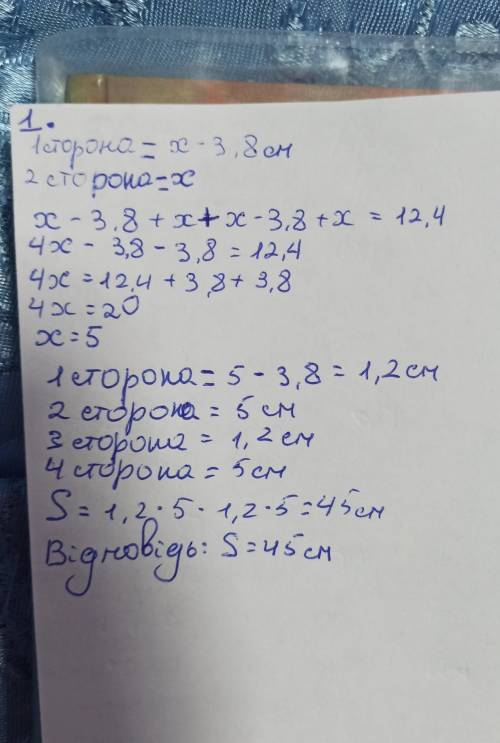 1.
1сторона = х - 3,8 см
2 сторона = х
х - 3,8 + х + х - 3,8 + х = 12,4
4х - 3,8 - 3,8 = 12,4
4х = 12,4 + 3,8 + 3,8
4х = 20
х = 5
1 сторона = 5 - 3,8 = 1,2 см
2 сторона = 5 см
3 сторона = 1,2 см
4 сторона = 5см
S = 1,2 · 5 · 1,2 · 5 = 45 см
Відповідь: S = 45 см